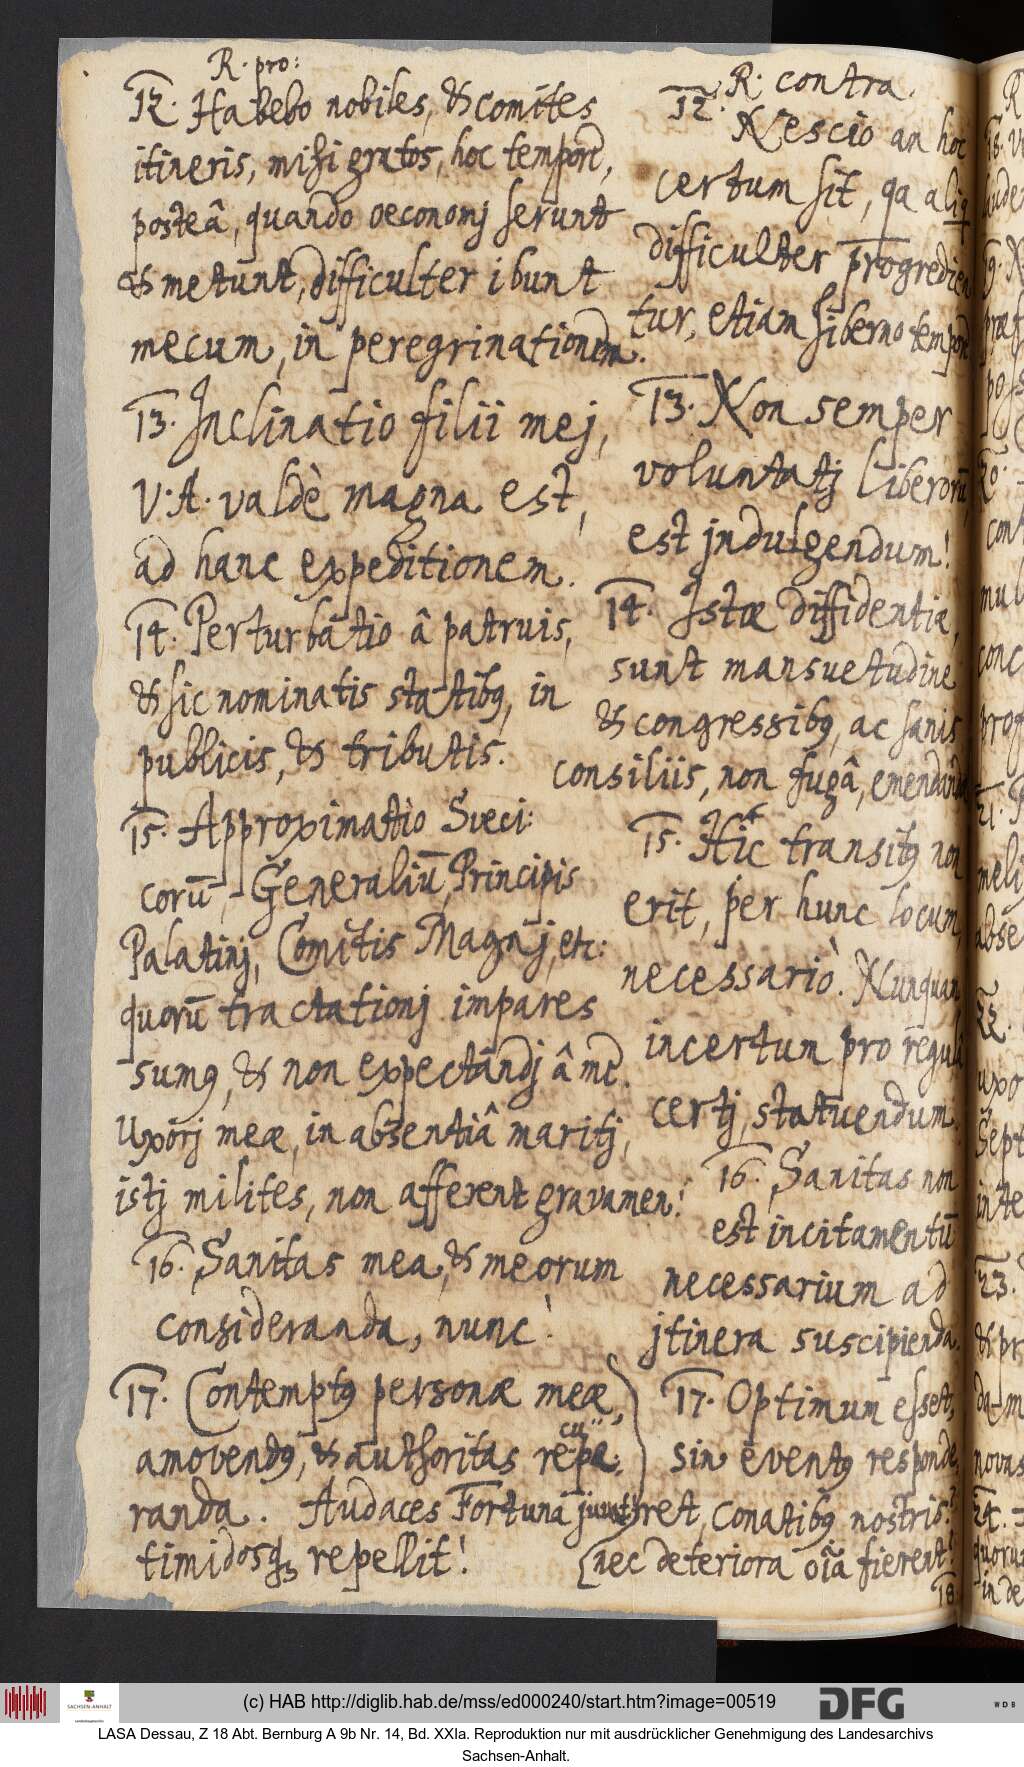 R. pro:
12. Habebo nobiles, & comites
itineris, mihi gratos, hoc tempore,
posteâ, quando oeconomj serunt
& metunt, difficulter ibunt
mecum, in peregrinationem.
13. Inclinatio filii mej,
V. A. valdè magna est,
ad hanc expeditionem.
14. Perturbatio â patruis,
& sic nominatis statibus, in
publicis, & tributis.
15. Approximatio Sveci:
corū, Generaliū, Principis
Palatinj, Comitis Magnj, etc:
quorū tractationj impares
sumus, & non expectandj â me.
Uxorj meæ, in absentiâ maritj,
istj milites, non afferent gravamen!
16. Sanitas mea, & meorum
consideranda, nunc!
17. Contemptus personæ meæ,
amovendus, & authoritas recupe:
randa. Audaces Fortuna juvat
timidosque repellit!
R. contra.
12. Nescio an hoc
certum sit, qa aliq
difficulter progredien
tur, etiam hiberno tempore
13. Non semper
voluntatj liberorū,
est jndulgendum!
14. Istæ diffidentiæ,
sunt mansuetudine
& congressibus, ac sanis
consiliis, non fugâ, emendandæ
15. Hic transitus non
erit, per hunc locum,
necessariò. Nunquam
incertum pro regula
certj, statuendum.
16. Sanitas non
est incitamentū
necessarium ad
jtinera suscipienda.
17. Optimum esset,
sin eventus responde
ret, conatibus nostris?
nec deteriora oīa fierent!
18.
(c) HAB http://diglib.hab.de/mss/ed000240/start.htm?image=00519
SACHSEN-ANHALT
DFG
WDB
LASA Dessau, Z 18 Abt. Bernburg A 9b Nr. 14, Bd. XXIa. Reproduktion nur mit ausdrücklicher Genehmigung des Landesarchivs
Sachsen-Anhalt.